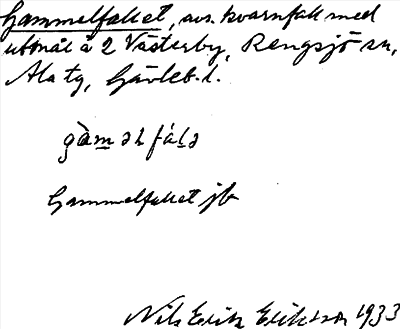 Gammelfallet, avs. kvarnfall med
utmål å 2 Västerby, Rengsjö sn,
Ala tg, Gävleb. l.
gàməlfálə
Gammelfallet jb
Nils Erik Eriksson 1933